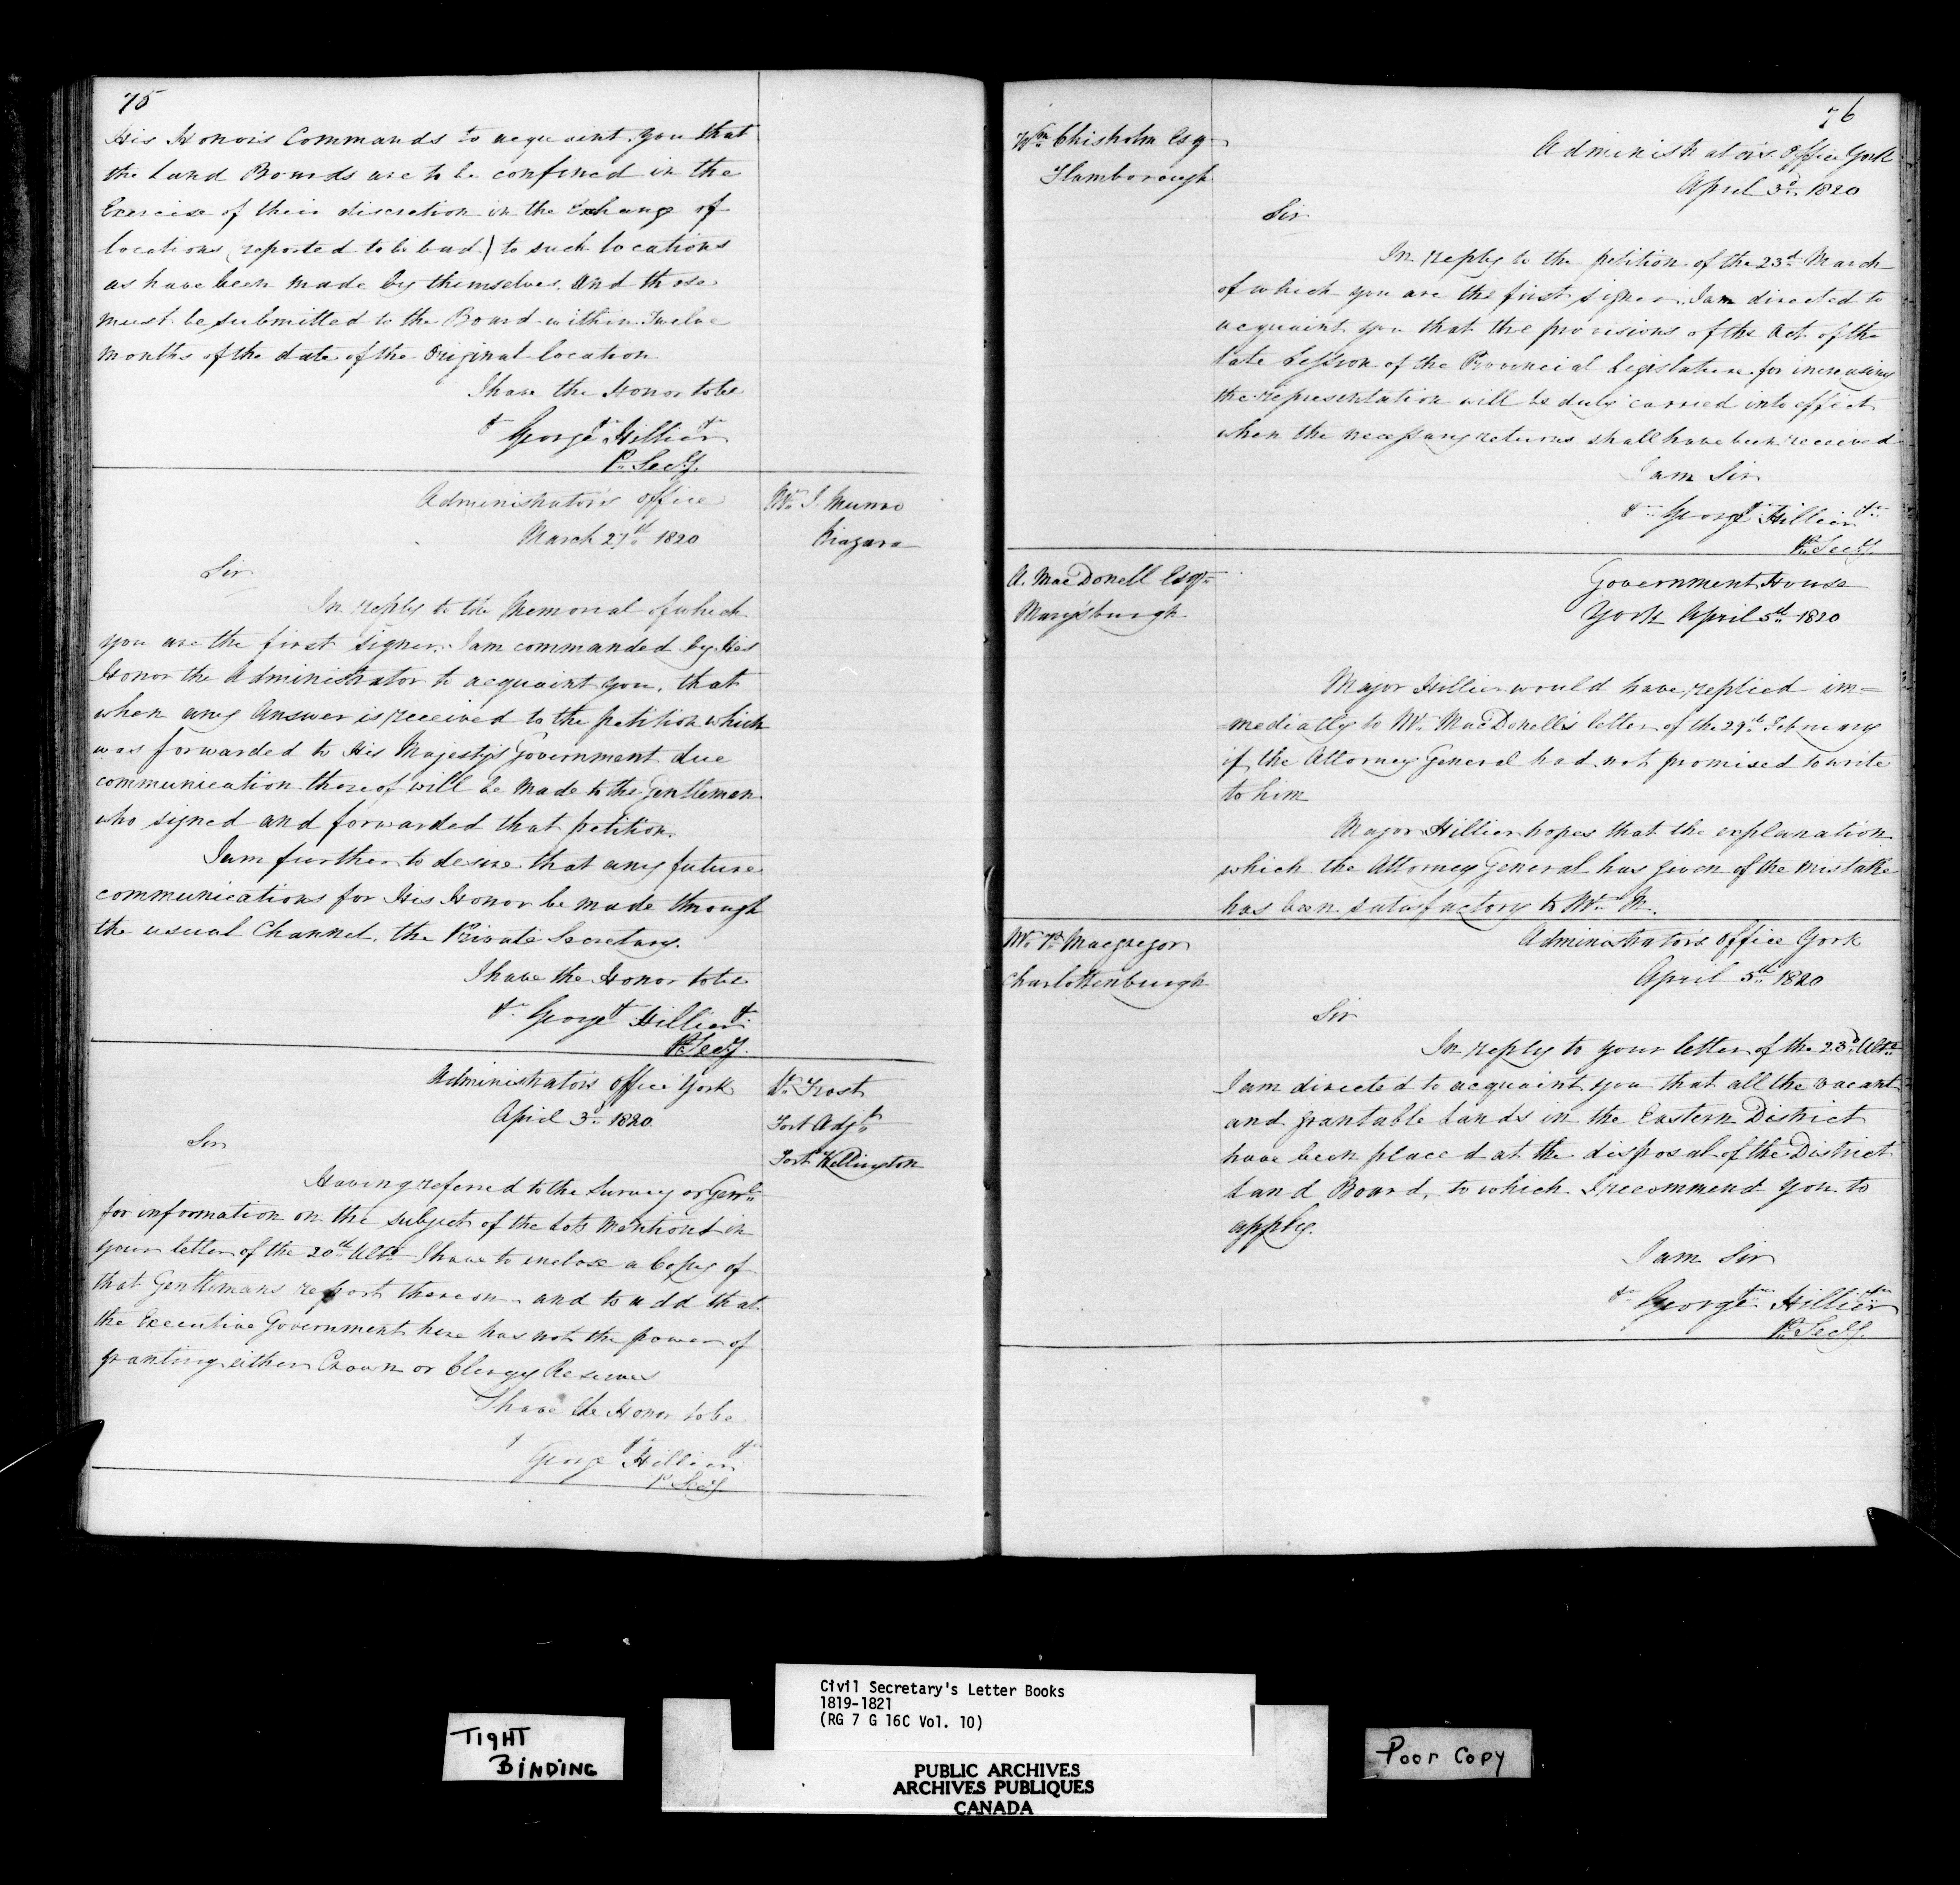 75
His Honors Commands to acquaint you that
the Land Boards are to be confined in the
Exercise of their discretion in the Exchange of
locations (reported to be bad) to such locations
as have been made by themselves. And those
must be submitted to the Board within Twelve
Months of the date of the Original location
I have the Honor to be
George Hillier
P. Secy.
Administrator's office
March 27th 1820
Mr. J. Munro
Niagara
Sir
In reply to the Memorial of which
you are the first signer. I am commanded by His
Honor the Administrator to acquaint you, that
when any Answer is received to the petition which
was forwarded to His Majestys Government due
communication thereof will be made to the Gentlemen
who signed and forwarded that petition.
I am further to desire that any future
communications for His Honor be made through
the usual Channel. the Private Secretary.
I have the Honor to be
George Hillier
P. Secy.
Administrators office York
April 3d. 1820.
Frost
Fort Adjt
Fort Wellington
Sir
Having referred to the Surveyor Genl.
for information on the subject of the Lots Mentiond in
your letter of the 20th Ulto. I have to enclose a Copy of
that Gentlemans report thereon and to add that
the Executive Government here has not the power of
granting either Crown or Clergy Reserves
I have the Honor to be
George Hillier
P. Secy.
76
Wm Chisholm Esq
Flamborough
Administrators Office York
April 3d. 1820
Sir
In reply to the petition of the 23d. March
of which you are the first signer. I am directed to
acquaint you that the provisions of the Act of the
late Session of the Provincial Legislature for increasing
the representation will be duly carried into effect
when the necessary returns shall have been received
I am Sir
George Hillier
P. Secy.
A. MacDonell Esqr.
Marysburgh
Government House
York April 5th 1820
Major Hillier would have replied im=
=mediatly to Mr. MacDonell's letter of the 29th February
if the Attorney General had not promised to write
to him
Major Hillier hopes that the explanation
which the Attorney General has given of the mistake
has been satisfactory to Mr. M.
Macgregor
Charlottenburgh
Administrators office York
April 5th 1820
Sir
In reply to your letter of the 23d. Ulto.
I am directed to acquaint you that all the vacant
and grantable Lands in the Eastern District
have been placed at the disposal of the District
Land Board, to which I recommend you to
apply.
I am Sir
George Hillier
P. Secy.
TIGHT
BINDING
Civil Secretary's Letter Books
1819-1821
(RG 7 G 16C Vol. 10)
PUBLIC ARCHIVES
ARCHIVES PUBLIQUES
CANADA
Poor Copy